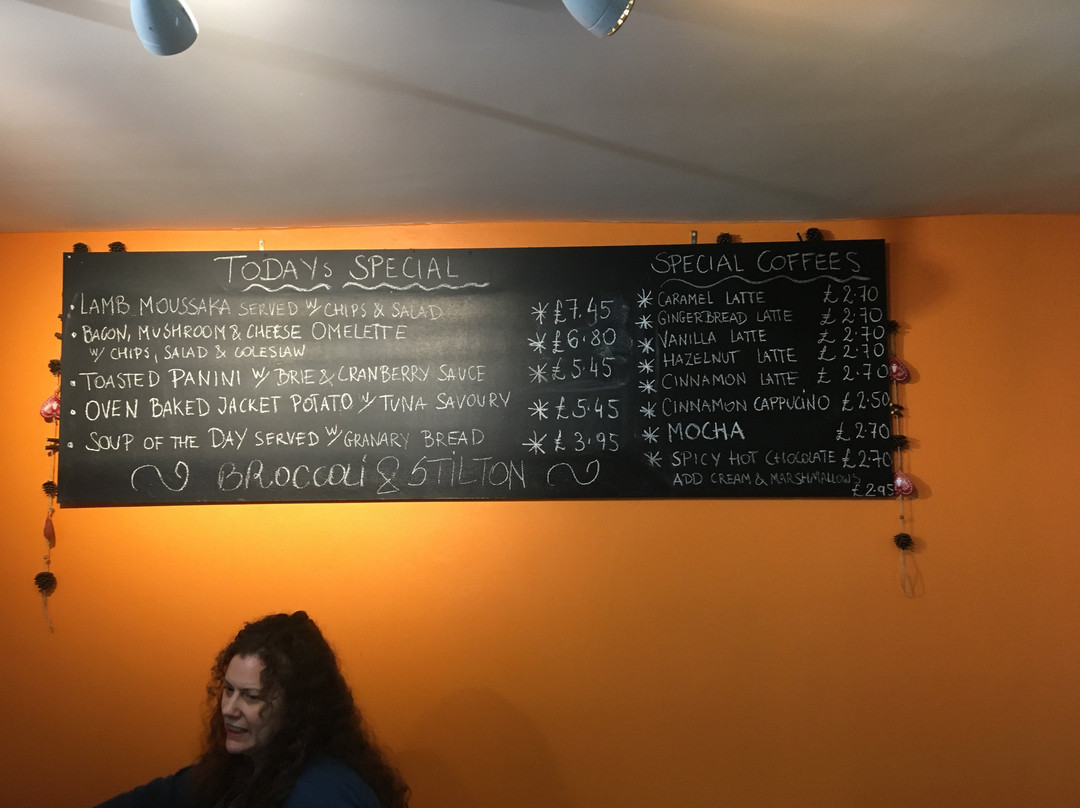 TODAYs SPECIAL
• LAMB MOUSSAKA SERVED W/ CHIPS & SALAD * £7.45
• BACON, MUSHROOM & CHEESE OMELETTE * £6.80
W/ CHIPS, SALAD & COLESLAW
• TOASTED PANINI W/ BRIE & CRANBERRY SAUCE * £5.45
• OVEN BAKED JACKET POTATO W/ TUNA SAVOURY * £5.45
• SOUP OF THE DAY SERVED W/ GRANARY BREAD * £3.95
BROCCOLi & STiLTON
SPECIAL COFFEES
* CARAMEL LATTE £2.70
* GINGERBREAD LATTE £2.70
* VANILLA LATTE £2.70
* HAZELNUT LATTE £2.70
* CINNAMON LATTE £2.70
* CINNAMON CAPPUCINO £2.50
* MOCHA £2.70
* SPICY HOT CHOCOLATE £2.70
ADD CREAM & MARSHMALLOWS
£2.95